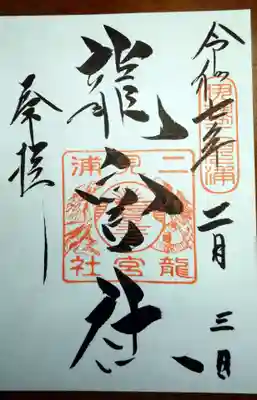 令和七年二月三日
龍宮社
奉拝
二見浦
龍宮社